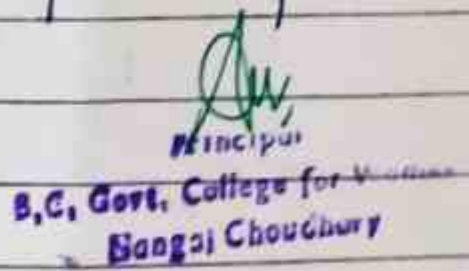 Principal
B,C, Govt, College for
Nangaj Choudhary